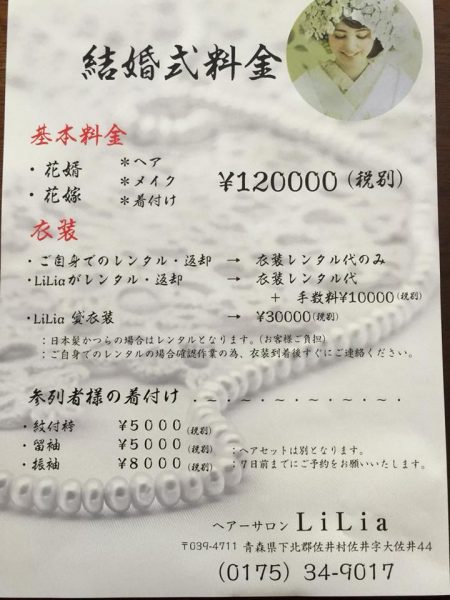 結婚式料金
基本料金
・花婿 ＊ヘア
＊メイク ¥120000(税別)
・花嫁 ＊着付け
衣装
・ご自身でのレンタル・返却 → 衣装レンタル代のみ
・LiLiaがレンタル・返却 → 衣装レンタル代
＋ 手数料¥10000(税別)
・LiLia 貸衣装 → ¥30000(税別)
：日本髪かつらの場合はレンタルとなります。(お客様ご負担)
：ご自身でのレンタルの場合確認作業の為、衣装到着後すぐにご連絡ください。
参列者様の着付け
・紋付袴 ¥5000(税別)
・留袖 ¥5000(税別) ：ヘアセットは別となります。
・振袖 ¥8000(税別) ：7日前までにご予約をお願いいたします。
ヘアーサロン LiLia
〒039-4711 青森県下北郡佐井村佐井字大佐井44
(0175) 34-9017